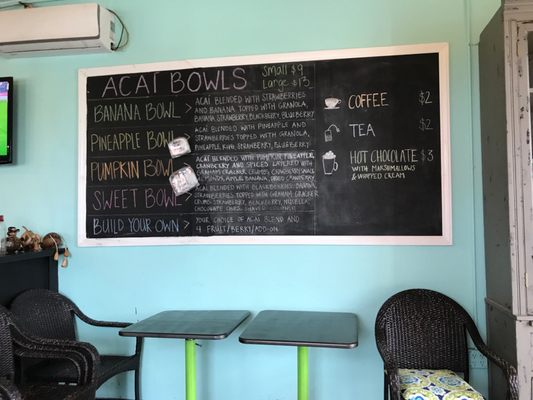 ACAI BOWLS
SMALL $9
LARGE $13
BANANA BOWL >
ACAI BLENDED WITH STRAWBERRIES
AND BANANA TOPPED WITH GRANOLA,
BANANA, STRAWBERRY, BLACKBERRY, BLUEBERRY
PINEAPPLE BOWL
ACAI BLENDED WITH PINEAPPLE AND
STRAWBERRIES TOPPED WITH GRANOLA,
PINEAPPLE, KIWI, STRAWBERRY, BLUEBERRY
PUMPKIN BOWL
ACAI BLENDED WITH PUMPKIN, PINEAPPLE,
CRANBERRY AND SPICES LAYERED WITH
GRAHAM CRACKER CRUMBS,
APPLE, BANANA, DRIED CRANBERRY
SWEET BOWL >
ACAI BLENDED WITH BLACKBERRIES, BANANA,
STRAWBERRIES TOPPED WITH GRAHAM CRACKER
CRUMBS, STRAWBERRY, BANANA, NUTELLA,
CHOCOLATE CHIPS, SHAVED COCONUT
BUILD YOUR OWN >
YOUR CHOICE OF ACAI BLEND AND
4 FRUIT/BERRY/ADD-ON
COFFEE $2
TEA $2
HOT CHOCOLATE $3
WITH MARSHMALLOWS
& WHIPPED CREAM